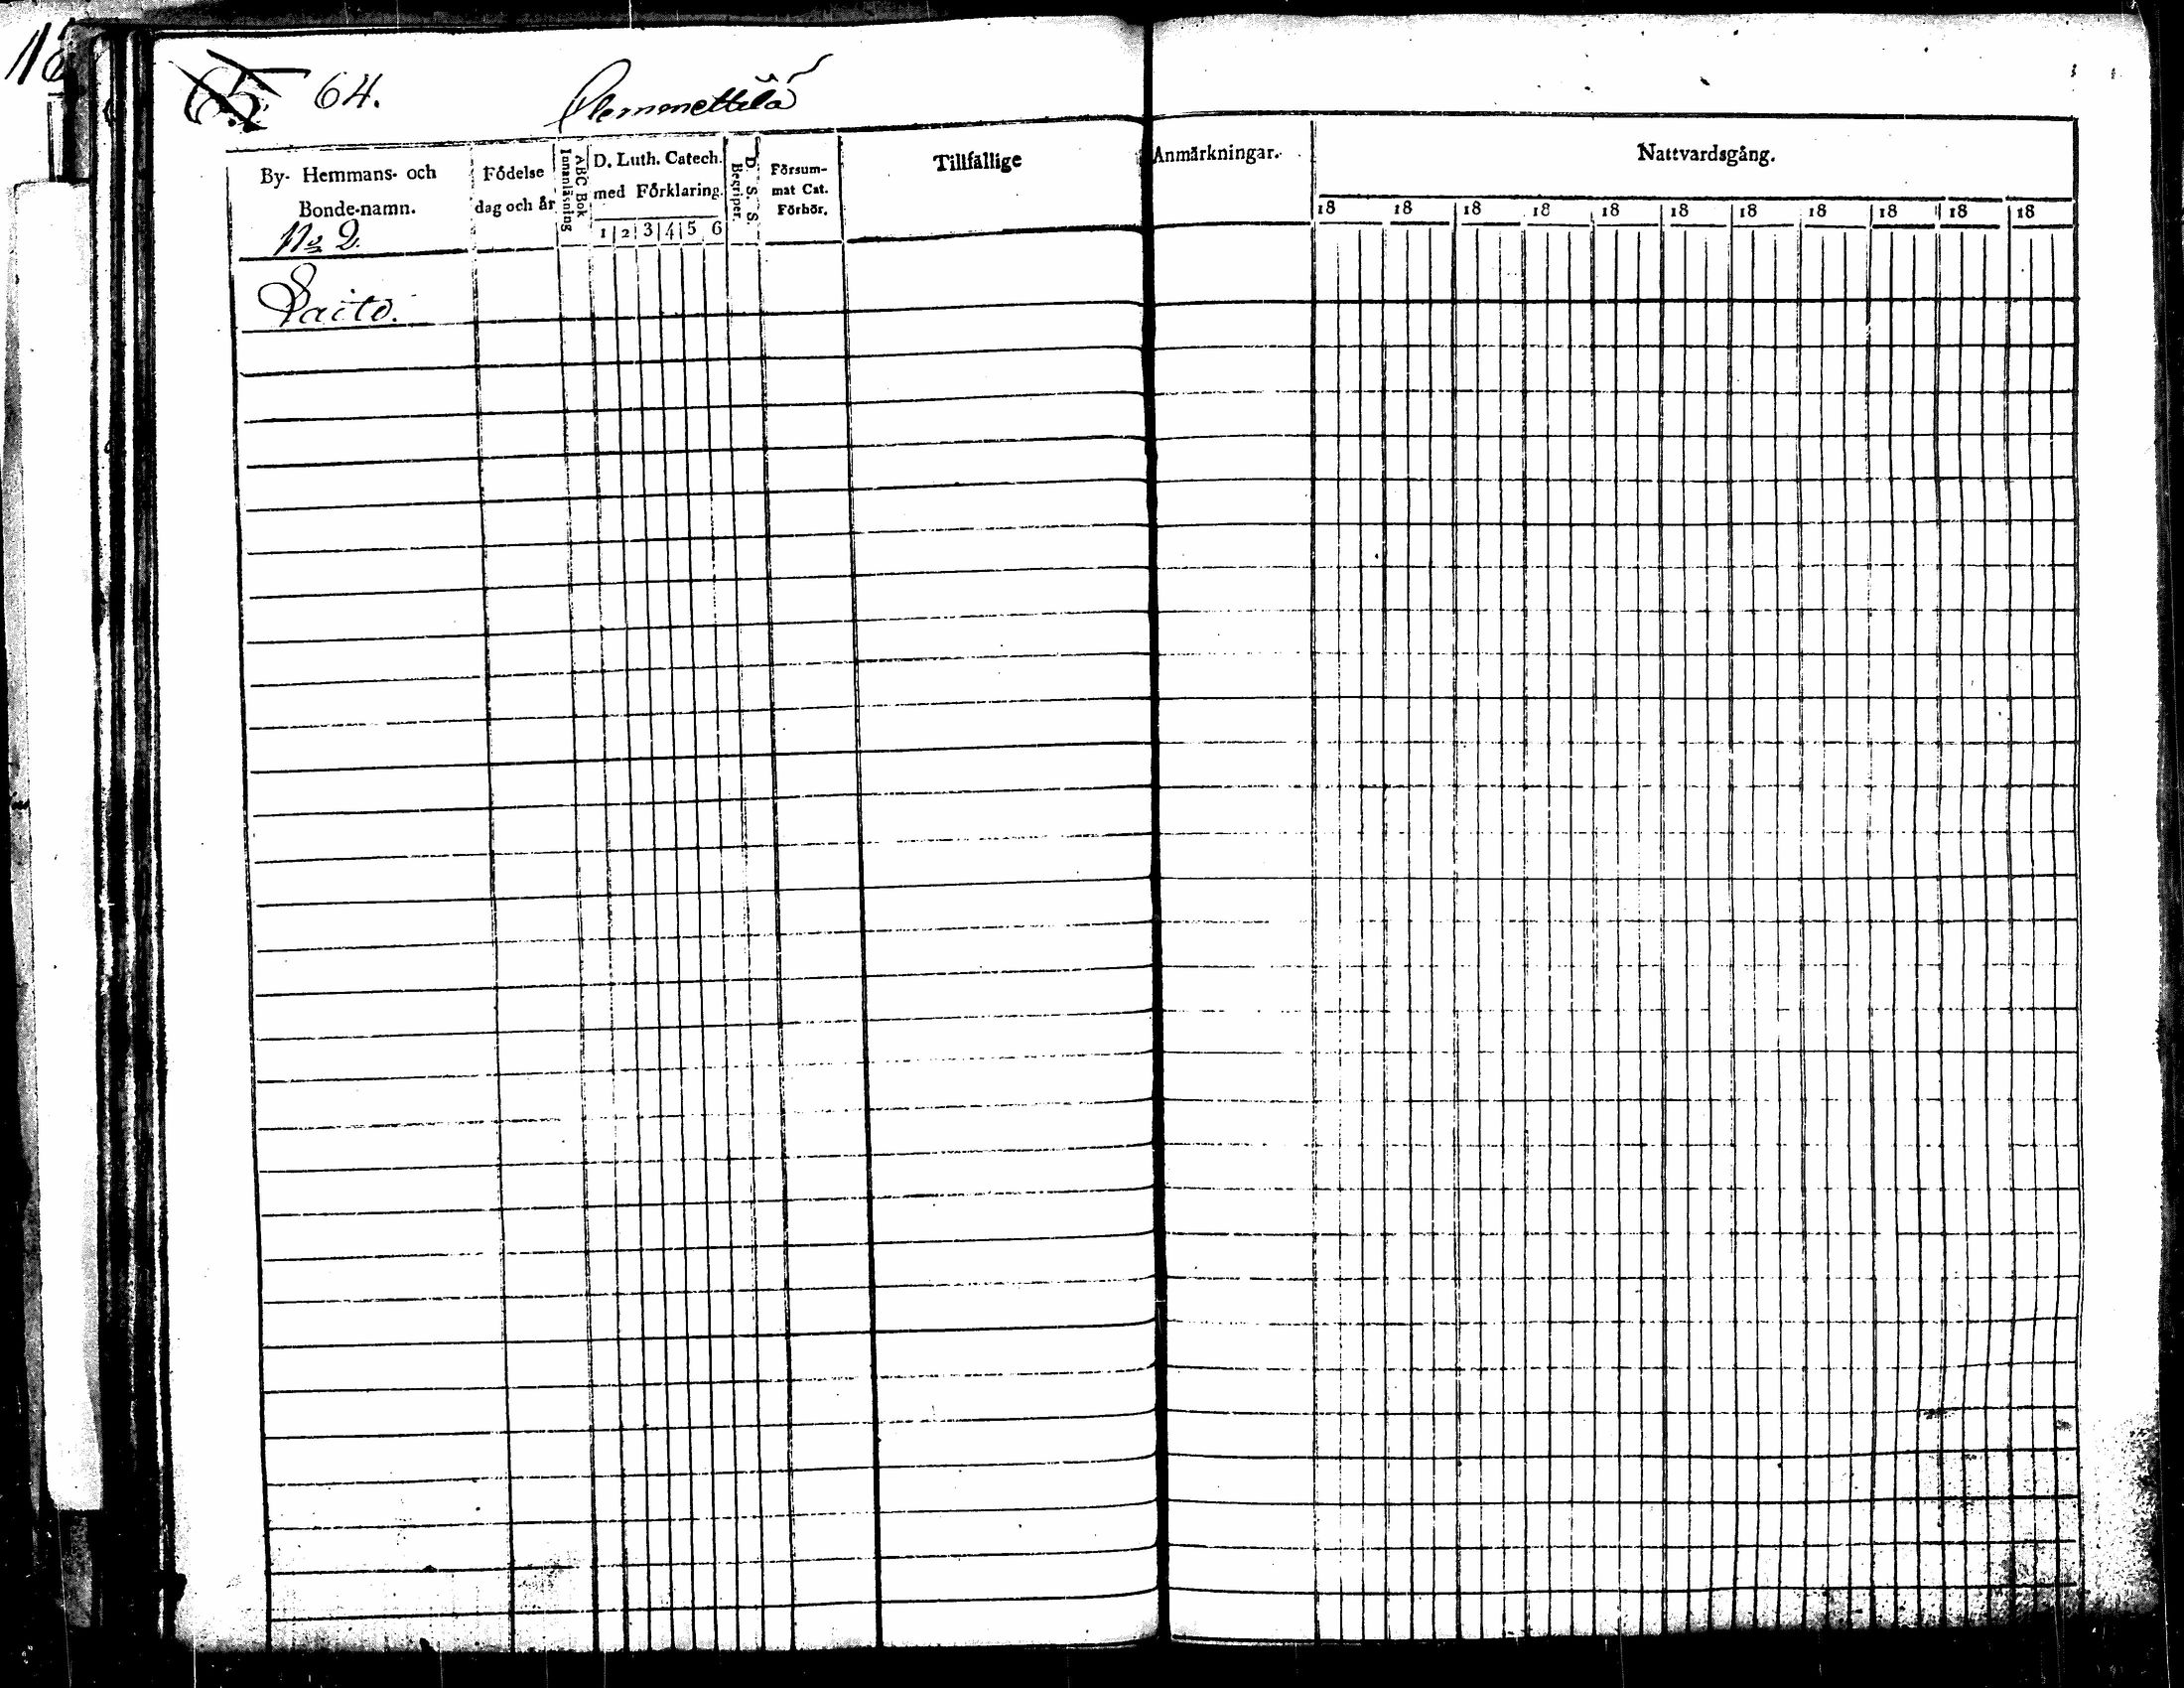 65 64. Clemmettilä
By- Hemmans- och
Bonde-namn.
No 2.
Födelse
dag och år
ABC Bok
Innanläsning
D. Luth. Catech.
med Förklaring.
1 2 3 4 5 6
D. S. S.
Begriper.
Försum-
mat Cat.
Förhör.
Tillfällige Anmärkningar.
Nattvardsgång.
18 18 18 18 18 18 18 18 18 18 18
Laito.